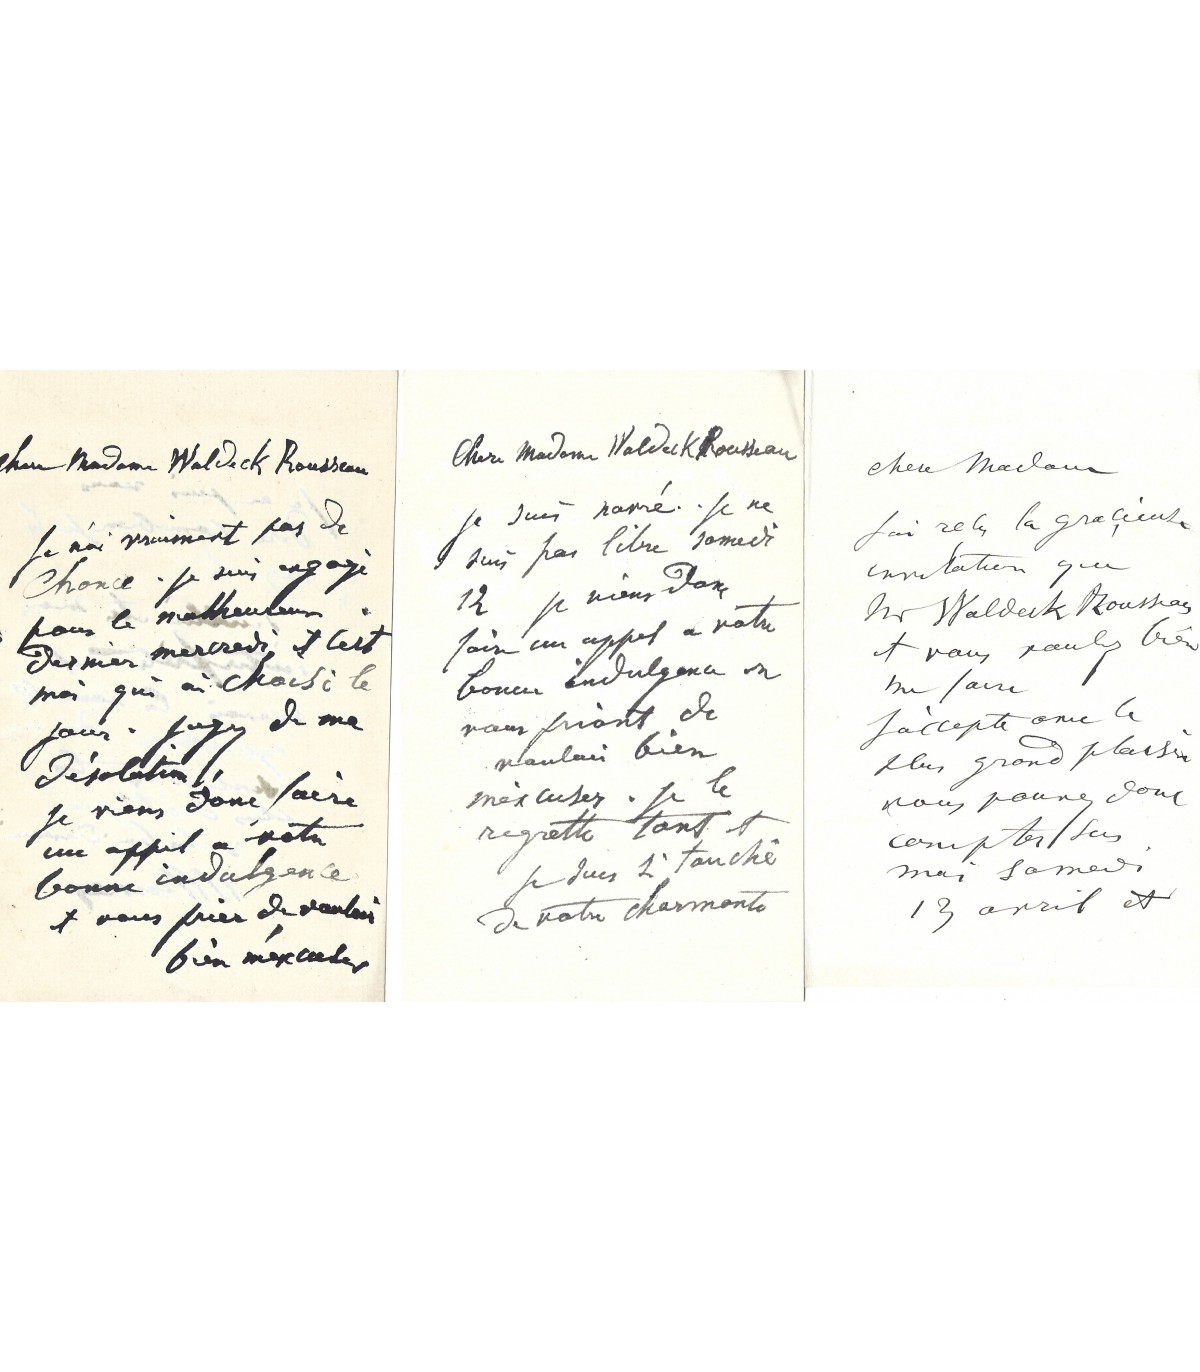 chere Madame Waldeck Rousseau
je n'ai vraiment pas de
chance. je suis engagé
pour le malheureux
dernier mercredi et c'est
moi qui ai choisi le
jour. jugez de ma
désolation
je viens donc faire
un appel a votre
bonne indulgence
et vous prier de vouloir
bien m'excuser
chere Madame Waldeck Rousseau
je suis navré. je ne
suis pas libre samedi
12 je viens donc
faire un appel a votre
bonne indulgence en
vous priant de
vouloir bien
m'excuser. je le
regrette tant et
je suis si touché
de votre charmante
chere Madame
j'ai reçu la gracieuse
invitation que
Mr Waldeck Rousseau
et vous voulez bien
me faire
j'accepte avec le
plus grand plaisir
vous pouvez donc
compter sur
moi samedi
13 avril et